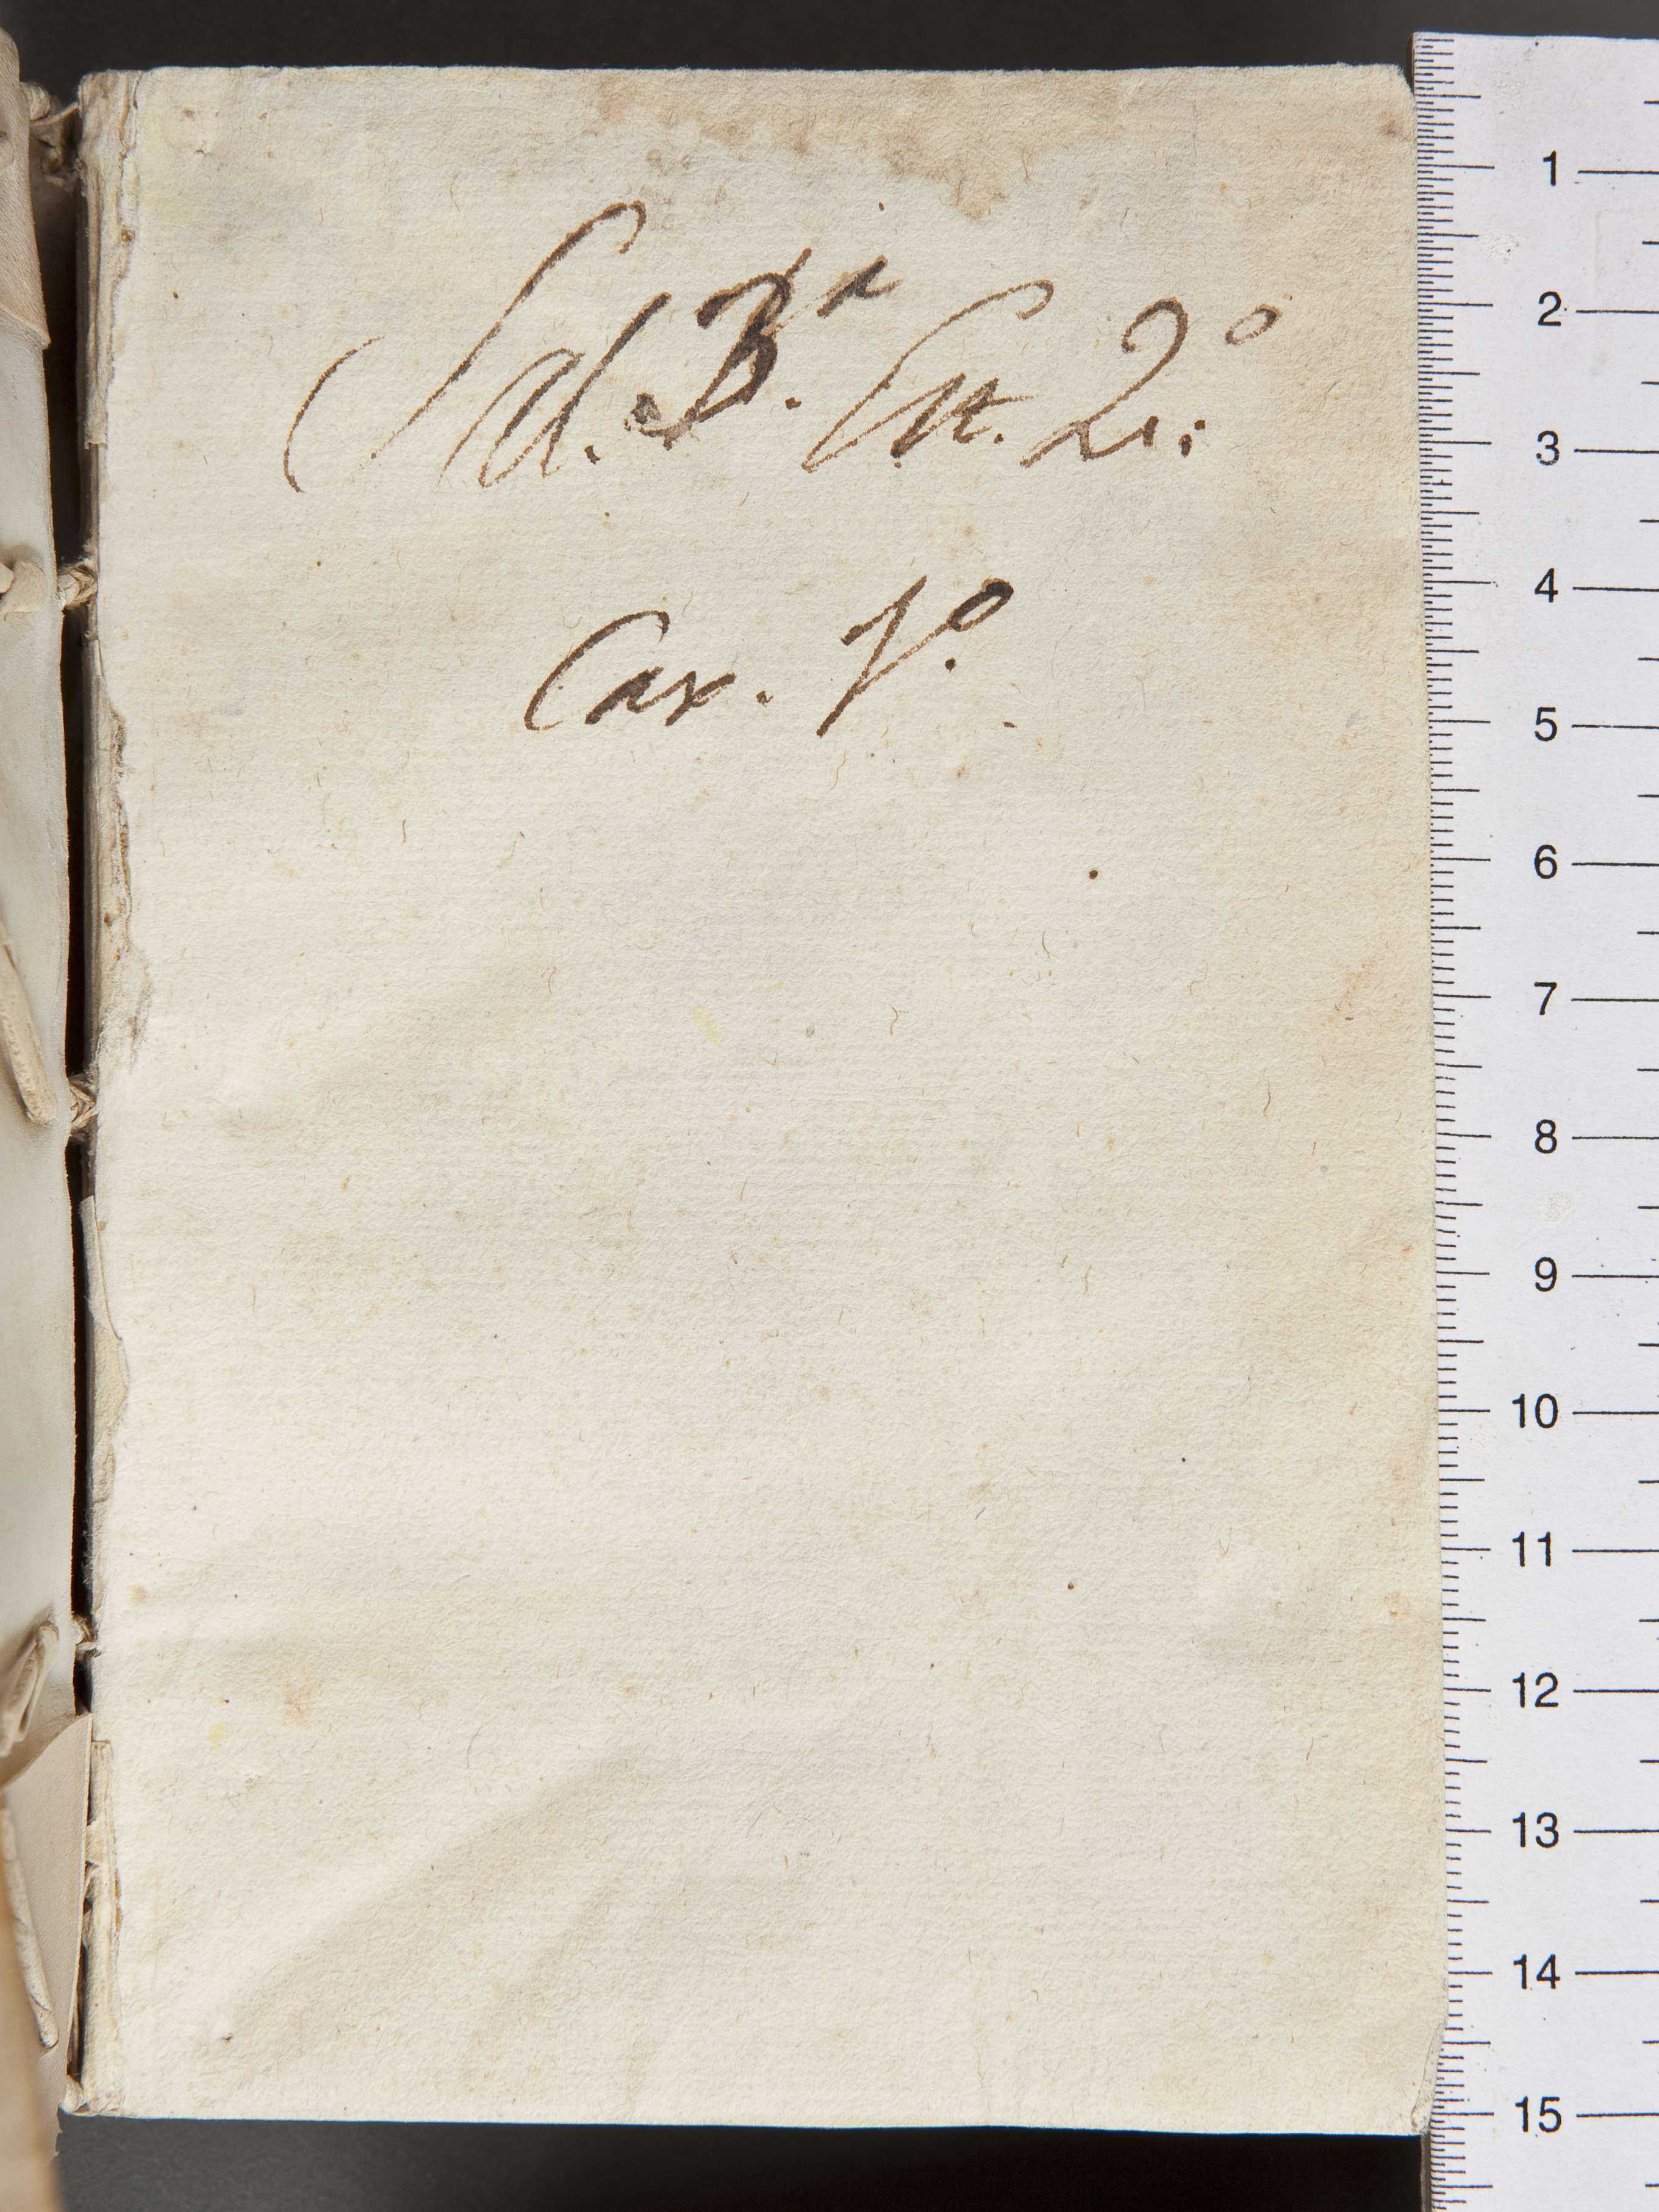 Sal. 3.ª Est. 2.º
Cax. 1.º
1
2
3
4
5
6
7
8
9
10
11
12
13
14
15